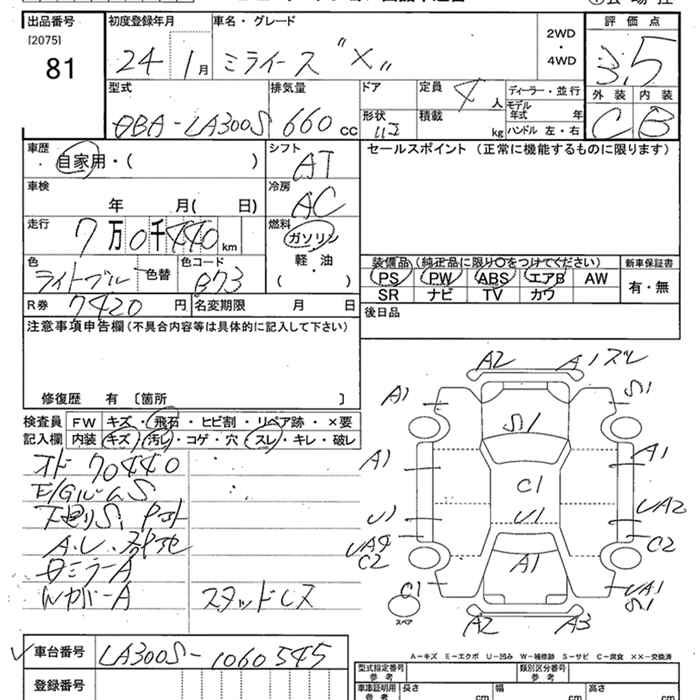 出品番号
[2075]
81
初度登録年月
24年1月
車名・グレード
ミライース "X"
2WD
・
4WD
評価点
3.5
外装 内装
C B
型式
DBA-LA300S
排気量
660 cc
ドア
形状
定員
4人
積載
kg
ディーラー・並行
モデル年式 年
ハンドル 左・右
車歴
自家用・( )
シフト
AT
セールスポイント(正常に機能するものに限ります)
車検
年 月( 日)
冷房
AC
走行
7万0千440km
燃料
ガソリン
軽・油
( )
色
ライトブルー
色替
色コード
B73
装備品(純正品に限り○をつけてください)
PS PW ABS エアB AW
SR ナビ TV カワ
新車保証書
有・無
R券
7420円
名変期限 月 日
後日品
注意事項申告欄(不具合内容等は具体的に記入して下さい)
修復歴 有〔箇所 〕
検査員記入欄
FW キズ・飛石・ヒビ割・リペア跡・×要
内装 キズ・汚レ・コゲ・穴・スレ・キレ・破レ
オド70440
E/GルームS
下廻りS
スタッドレス
A2 A1スレ
A1 S1
S1
A1 A1
C1
U1 U1 UA2
UA4 C2
C2
A1
C1 UA1
S1
スペア
A2 A3
A-キズ E-エクボ U-凹み W-補修跡 S-サビ C-腐食 ××-交換済
車台番号
LA300S-1060545
登録番号
型式指定番号 参考
類別区分番号 参考
車庫証明用 参考
長さ cm 幅 cm 高さ cm